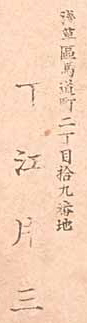 淺草區馬道町二丁目拾九番地
丁江片三